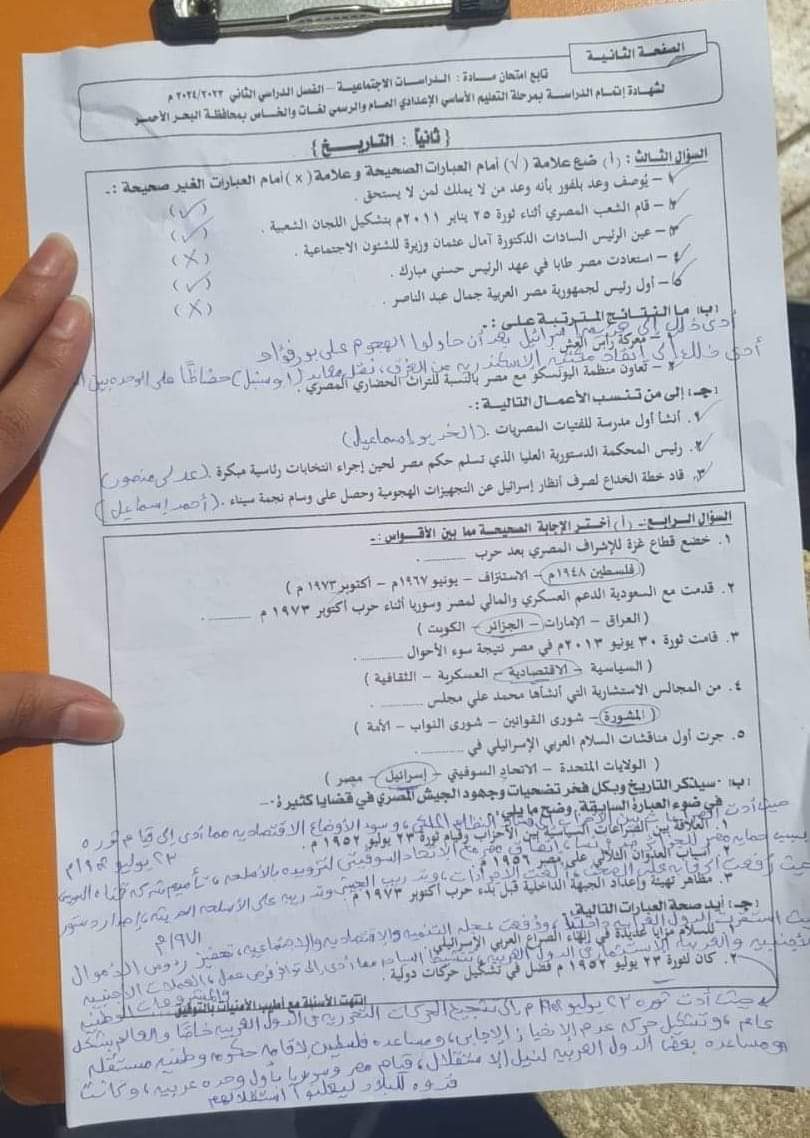 الصفحة الثانية
تابع امتحان مادة : الدراسات الاجتماعية – الفصل الدراسي الثاني ٢٠٢٤/٢٠٢٣ م
لشهادة إتمام الدراسة بمرحلة التعليم الأساسي الإعدادي العام والرسمي لغات والخاص بمحافظة البحر الأحمر
{ ثانياً : التاريخ }
السؤال الثالث : (أ) ضع علامة (√) أمام العبارات الصحيحة و علامة (×) أمام العبارات الغير صحيحة :-
١- يُوصف وعد بلفور بأنه وعد من لا يملك لمن لا يستحق . (√)
٢- قام الشعب المصري أثناء ثورة ٢٥ يناير ٢٠١١م بتشكيل اللجان الشعبية . (√)
٣- عين الرئيس السادات الدكتورة آمال عثمان وزيرة للشئون الاجتماعية . (×)
٤- استعادت مصر طابا في عهد الرئيس حسني مبارك . (√)
٥- أول رئيس لجمهورية مصر العربية جمال عبد الناصر . (×)
(ب) ما النتائج المترتبة على :-
أدى ذلك إلى إسرائيل بعد أن حاولوا الهجوم على بور فؤاد
١- معركة رأس العش
أدى ذلك إلى إنقاذ مكتبة الاسكندرية من الغرق، نقل معابد (ابو سنبل) حفاظًا على
٢- تعاون منظمة اليونسكو مع مصر بالنسبة للتراث الحضاري المصري .
(جـ) إلى من تنسب الأعمال التالية :-
١. أنشأ أول مدرسة للفتيات المصريات . (الخديو إسماعيل)
٢. رئيس المحكمة الدستورية العليا الذي تسلم حكم مصر لحين إجراء انتخابات رئاسية مبكرة . (عدلي منصور)
٣. قاد خطة الخداع لصرف أنظار إسرائيل عن التجهيزات الهجومية وحصل على وسام نجمة سيناء . (أحمد إسماعيل)
السؤال الرابع :- (أ) أختر الإجابة الصحيحة مما بين الأقواس :-
١. خضع قطاع غزة للإشراف المصري بعد حرب ........
( فلسطين ١٩٤٨م – الاستنزاف – يونيو ١٩٦٧م – أكتوبر ١٩٧٣ م )
٢. قدمت مع السعودية الدعم العسكري والمالي لمصر وسوريا أثناء حرب أكتوبر ١٩٧٣ م ........
( العراق – الإمارات – الجزائر – الكويت )
٣. قامت ثورة ٣٠ يونيو ٢٠١٣م في مصر نتيجة سوء الأحوال ........
( السياسية – الاقتصادية – العسكرية – الثقافية )
٤. من المجالس الاستشارية التي أنشأها محمد علي مجلس ........
( المشورة – شورى القوانين – شورى النواب – الأمة )
٥. جرت أول مناقشات السلام العربي الإسرائيلي في ........
( الولايات المتحدة – الاتحاد السوفيتي – إسرائيل – مصر )
(ب) "سيذكر التاريخ وبكل فخر تضحيات وجهود الجيش المصري في قضايا كثيرة"
في ضوء العبارة السابقة . وضح ما يلي :
حيث أدت وسوء الأوضاع الاقتصادية مما أدى إلى قيام ثورة
١. العلاقة بين الصراعات السياسية بين الأحزاب وقيام ثورة ٢٣ يوليو ١٩٥٢ م .
٢٣ يوليو ١٩٥٢م
مصر مع الاتحاد السوفيتي لتزويده بالأسلحة، تأميم شركة قناة السويس
٢. أسباب العدوان الثلاثي على مصر ١٩٥٦ م
وتدريب الجيش وتدريبه على الأسلحة الحديثة، إصدار دستور
٣. مظاهر تهيئة وإعداد الجبهة الداخلية قبل بدء حرب أكتوبر ١٩٧٣ م
١٩٧١م
(جـ) أيد صحة العبارات التالية :
ودفعت عجلة التنمية والاقتصادية والاجتماعية، تحفيز رءوس الأموال
١. للسلام مزايا عديدة في إنهاء الصراع العربي الإسرائيلي .
٢. كان لثورة ٢٣ يوليو ١٩٥٢ م فضل في تشكيل حركات دولية .
انتهت الأسئلة مع أطيب الأمنيات بالتوفيق
حيث أدت ثورة ٢٣ يوليو ١٩٥٢م إلى تشجيع الحركات التحررية في الدول العربية خاصًا والعالم بشكل
عام، وتشكيل حركة عدم الإنحياز الإيجابي، ومساعدة فلسطين لاقامة حكومة وطنية مستقلة
ومساعدة بعض الدول العربية لنيل الاستقلال، قيام مصر وسوريا بأول وحدة عربية، وكانت
قدوه للبلاد ليعلنوا استقلالهم